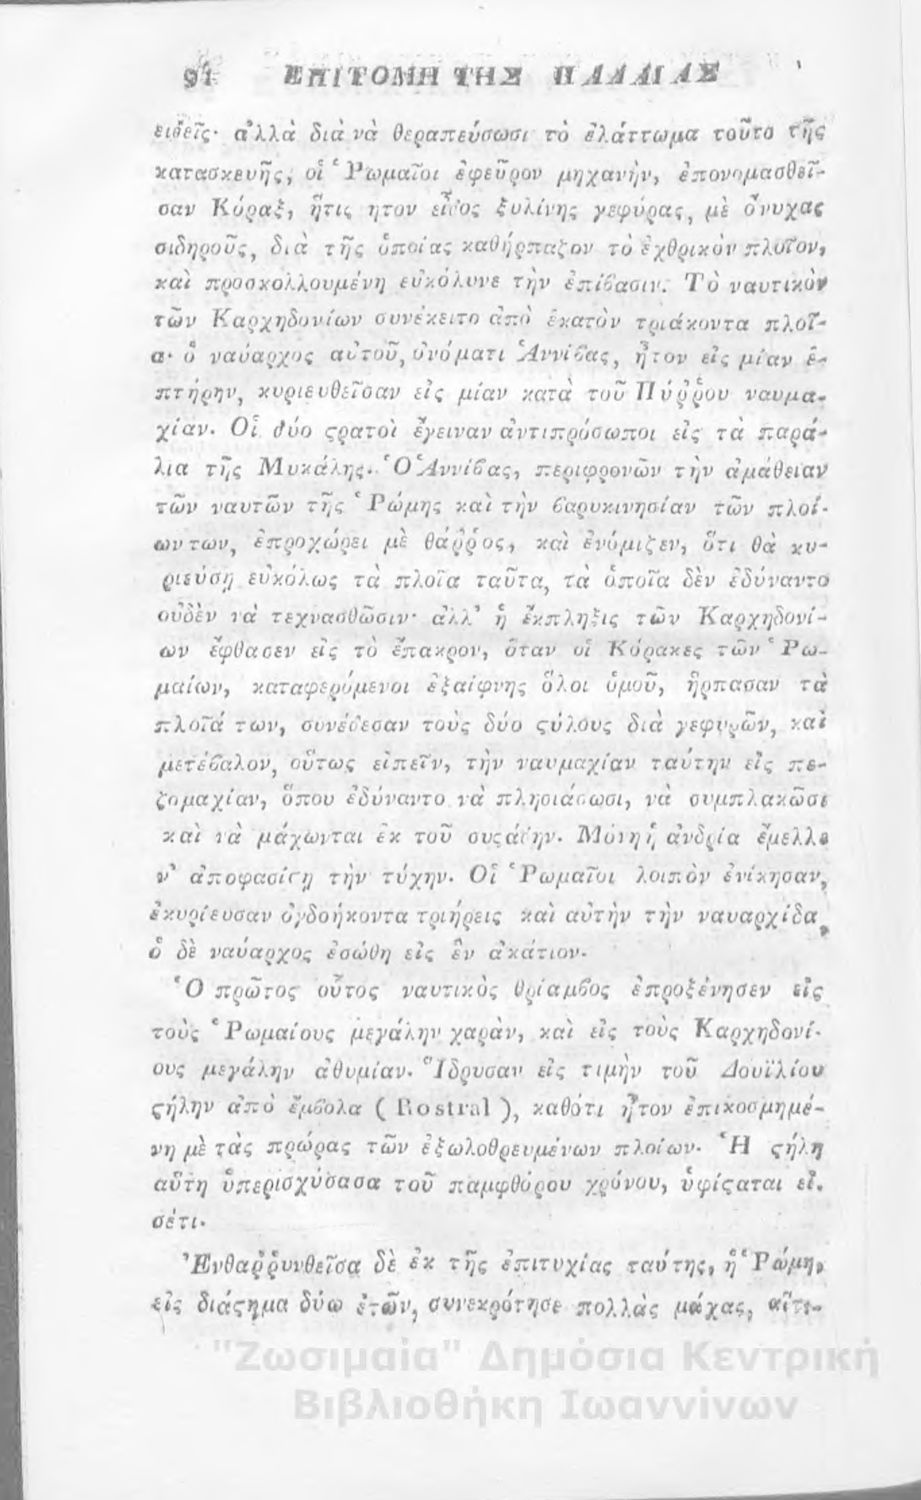 ΕΠΙΤΟΜΗ ΤΗΣ ΠΑΛΑΙΑΣ
ειδεῖς· ἀλλὰ διὰ νὰ θεραπεύσωσι τὸ ἐλάττωμα τοῦτο τῆς
κατασκευῆς, οἱ Ῥωμαῖοι ἐφεῦρον μηχανὴν, ἐπονομασθεῖ-
σαν Κόραξ, ἥτις ητον εἶδος ξυλίνης γεφύρας, μὲ ὄνυχας
σιδηροῦς, διὰ τῆς ὁποίας καθήρπαζον τὸ ἐχθρικὸν πλοῖον,
καὶ προσκολλουμένη εὐκόλυνε τὴν ἐπίϐασιν. Τὸ ναυτικὸν
τῶν Καρχηδονίων συνέκειτο ἀπὸ ἑκατὸν τριάκοντα πλοῖ-
α· ὁ ναύαρχος αὐτοῦ, ὀνόματι Ἀννίϐας, ἦτον εἰς μίαν ἑ-
πτήρην, κυριευθεῖσαν εἰς μίαν κατὰ τοῦ Πύῤῥου ναυμα-
χίαν. Οἱ δύο ϛρατοὶ ἔγειναν ἀντιπρόσωποι εἰς τὰ παρά-
λια τῆς Μυκάλης. Ὁ Ἀννίϐας, περιφρονῶν τὴν ἀμάθειαν
τῶν ναυτῶν τῆς Ῥώμης καὶ τὴν ϐαρυκινησίαν τῶν πλοί-
ων των, ἐπροχώρει μὲ θάῤῥος, καὶ ἐνόμιζεν, ὅτι θὰ κυ-
ριεύσῃ εὐκόλως τὰ πλοῖα ταῦτα, τὰ ὁποῖα δὲν ἐδύναντο
οὐδὲν νὰ τεχνασθῶσιν· ἀλλ' ἡ ἔκπληξις τῶν Καρχηδονί-
ων ἔφθασεν εἰς τὸ ἔπακρον, ὅταν οἱ Κόρακες τῶν Ῥω-
μαίων, καταφερόμενοι ἐξαίφνης ὅλοι ὁμοῦ, ἥρπασαν τὰ
πλοῖά των, συνέδεσαν τοὺς δύο ϛύλους διὰ γεφυρῶν, καὶ
μετέϐαλον, οὕτως εἰπεῖν, τὴν ναυμαχίαν ταύτην εἰς πε-
ζομαχίαν, ὅπου ἐδύναντο νὰ πλησιάσωσι, νὰ συμπλακῶσι
καὶ νὰ μάχωνται ἐκ τοῦ συϛάδην. Μόνη ἡ ἀνδρία ἔμελλε
ν' ἀποφασίσῃ τὴν τύχην. Οἱ Ῥωμαῖοι λοιπὸν ἐνίκησαν,
ἐκυρίευσαν ὀγδοήκοντα τριήρεις καὶ αὐτὴν τὴν ναυαρχίδα,
ὁ δὲ ναύαρχος ἐσώθη εἰς ἓν ἀκάτιον.
Ὁ πρῶτος οὗτος ναυτικὸς θρίαμϐος ἐπροξένησεν εἰς
τοὺς Ῥωμαίους μεγάλην χαρὰν, καὶ εἰς τοὺς Καρχηδονί-
ους μεγάλην ἀθυμίαν. Ἵδρυσαν εἰς τιμὴν τοῦ Δουϊλίου
ϛήλην ἀπὸ ἔμϐολα ( Rostral ), καθότι ἦτον ἐπικοσμημέ-
νη μὲ τὰς πρώρας τῶν ἐξωλοθρευμένων πλοίων. Ἡ ϛήλη
αὕτη ὑπερισχύσασα τοῦ παμφθόρου χρόνου, ὑφίϛαται εἰ.
σέτι.
Ἐνθαῤῥυνθεῖσα δὲ ἐκ τῆς ἐπιτυχίας ταύτης, ἡ Ῥώμη,
εἰς διάϛημα δύω ἐτῶν, συνεκρότησε πολλὰς μάχας, αἵτι-
"Ζωσιμαία" Δημόσια Κεντρική
Βιβλιοθήκη Ιωαννίνων